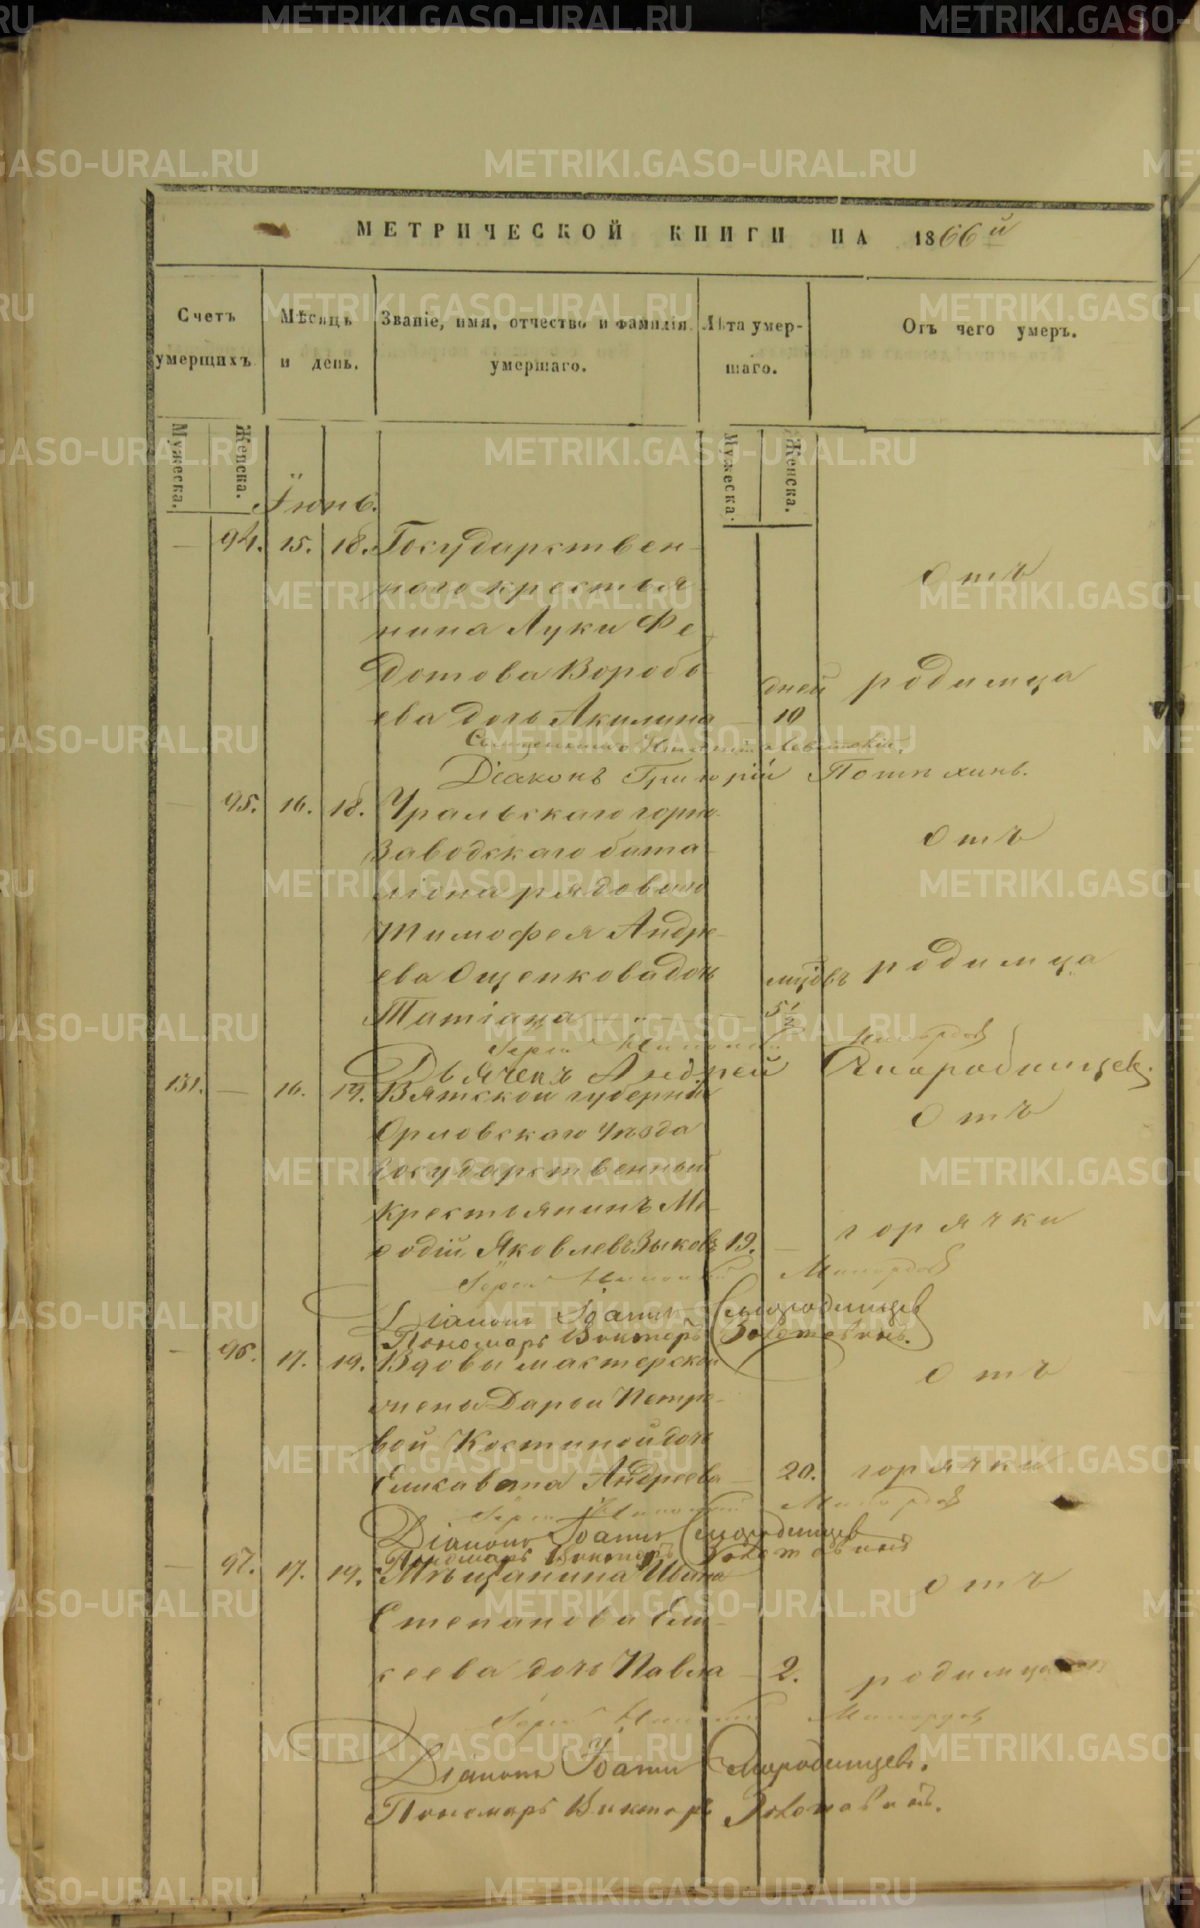 МЕТРИЧЕСКОЙ КНИГИ НА 1866й
Счетъ умерщихъ.
Мѣсяцъ и день.
Званіе, имя, отчество и фамилія умершаго.
Лѣта умершаго.
Отъ чего умеръ.
Мужеска.
Женска.
Мужеска.
Женска.
Іюнь.
— 94. 15. 18. Государствен-
наго крестья-
нина Луки Фе-
дотова Воробь-
ева дочь Акилина — дней 10
Отъ
родимца
Діаконъ Григорій
— 95. 16. 18. Уральскаго горно-
заводскаго бата-
ліона рядоваго
Тимофея Андре-
ева Ощепкова дочь
Татіана — мцовъ 5 1/2
Отъ
родимца
Дьячекъ Андрей Смородинцев.
131. — 16. 19. Вятской губерніи
Орловскаго уѣзда
государственный
крестьянинъ Ме-
ѳодій Яковлевъ Зыковъ 19. —
Отъ
горячки
Діаконъ Іоаннъ Смородинцев
Пономарь Викторъ
— 96. 17. 19. Вдовы мастерской
жены Дарьи Петро-
вой Костиной дочь
Елисавета Андреева — 20.
Отъ
горячки
Діаконъ Іоаннъ Смородинцев
Пономарь Викторъ
— 97. 17. 19. Мѣщанина Ивана
Степанова Ели-
сеева дочь Павла — 2.
Отъ
родимца
Діаконъ Іоаннъ Смородинцевъ.
Пономарь Викторъ
METRIKI.GASO-URAL.RU